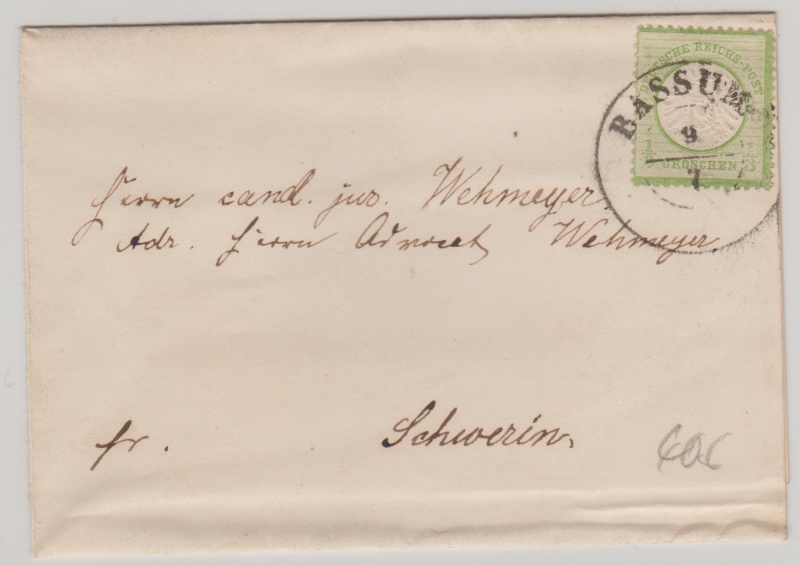 DEUTSCHE REICHS-POST
1/3 1/3
GROSCHEN
BASSUM
9
7
Herrn cand. jur. Wehmeyer,
Adr. Herrn Advocat Wehmeyer,
fr. Schwerin,